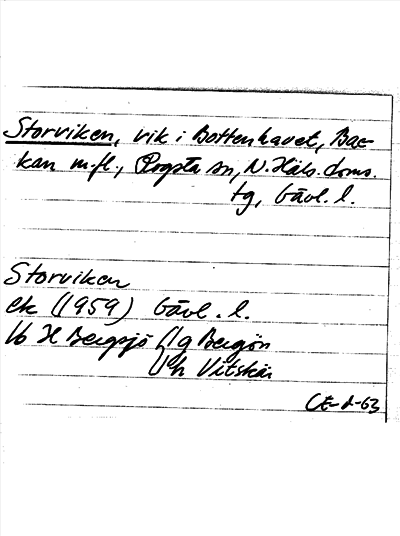 Storviken, vik i Bottenhavet, Bac-
kan m.fl., Rogsta sn, N. Häls. doms.
tg, Gävl. l.
Storviken
ek (1959) Gävl. l.
16 H Bergsjö 1g Bergön
h Vitskär
CE-d-63